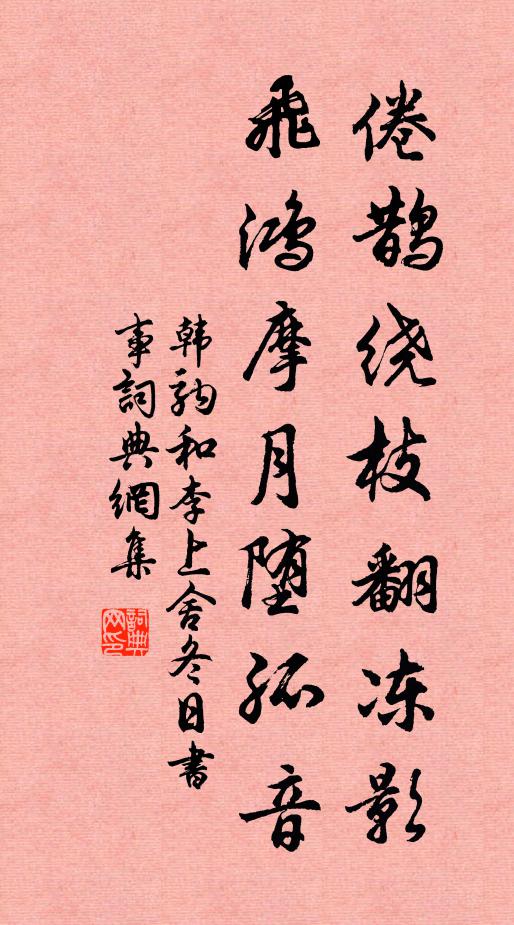 倦鹊绕枝翻冻影
飛鸿摩月堕孤音
韩驹和李上舍冬日書
事詞典網集
詞典
网印